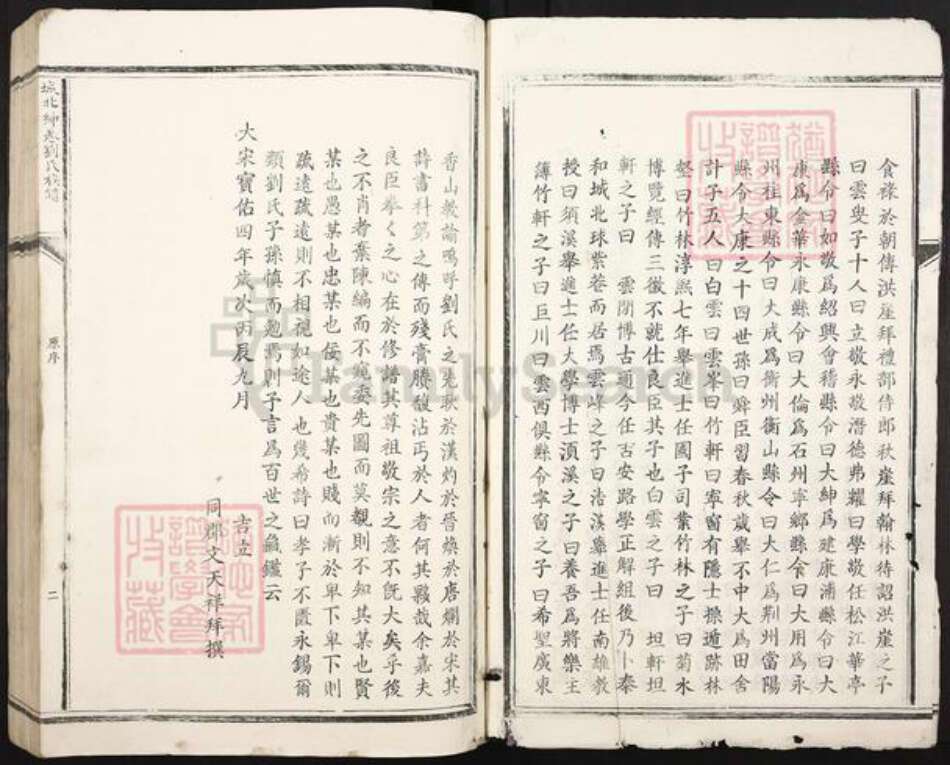 食祿於朝傳洪崖拜禮部侍郎秋崖拜翰林待詔洪崖之子
曰雲叟子十人曰立敬永敬潛德弗耀曰學敬任松江華亭
縣令曰如敬爲紹興會稽縣令曰大紳爲建康浦縣令曰大
康爲金華永康縣令曰大倫爲石州寧鄉縣令曰大用爲永
州桂東縣令曰大成爲衡州衡山縣令曰大仁爲荆州當陽
縣令大康之十四世孫曰舜臣習春秋歲舉不中大爲田舍
計子五人曰白雲曰雲峯曰竹軒曰寧窗有隱士操遁跡林
壑曰竹林淳熙七年舉進士任國子司業竹林之子曰菊水
博覽經傳三徵不就仕良臣其子也白雲之子曰坦軒坦
軒之子曰雲閒博古通今任吉安路學正解組後乃卜泰
和城北珠紫巷而居焉雲峰之子曰浩溪舉進士任南雄教
授曰須溪舉進士任大學博士須溪之子曰養吾爲將樂主
簿竹軒之子曰巨川曰雲西俱縣令寧窗之子曰希聖廣東
香山教諭嗚呼劉氏之先耿於漢灼於晉煥於唐爛於宋其
詩書科第之傳而殘膏賸馥沾丐於人者何其夥哉余嘉夫
良臣拳く之心在於修譜其尊祖敬宗之意不旣大矣乎後
之不肖者棄陳編而不觀委先圖而莫覩則不知其某也賢
某也愚某也忠某也佞某也貴某也賤而漸於卑下卑下則
疏遠疏遠則不相視如途人也幾希詩曰孝子不匱永錫爾
類劉氏子孫慎而勉焉則予言爲百世之龜鑑云
大宋寶佑四年歲次丙辰九月
吉立
同郡文天祥拜撰
城北劉氏族譜
原序
二